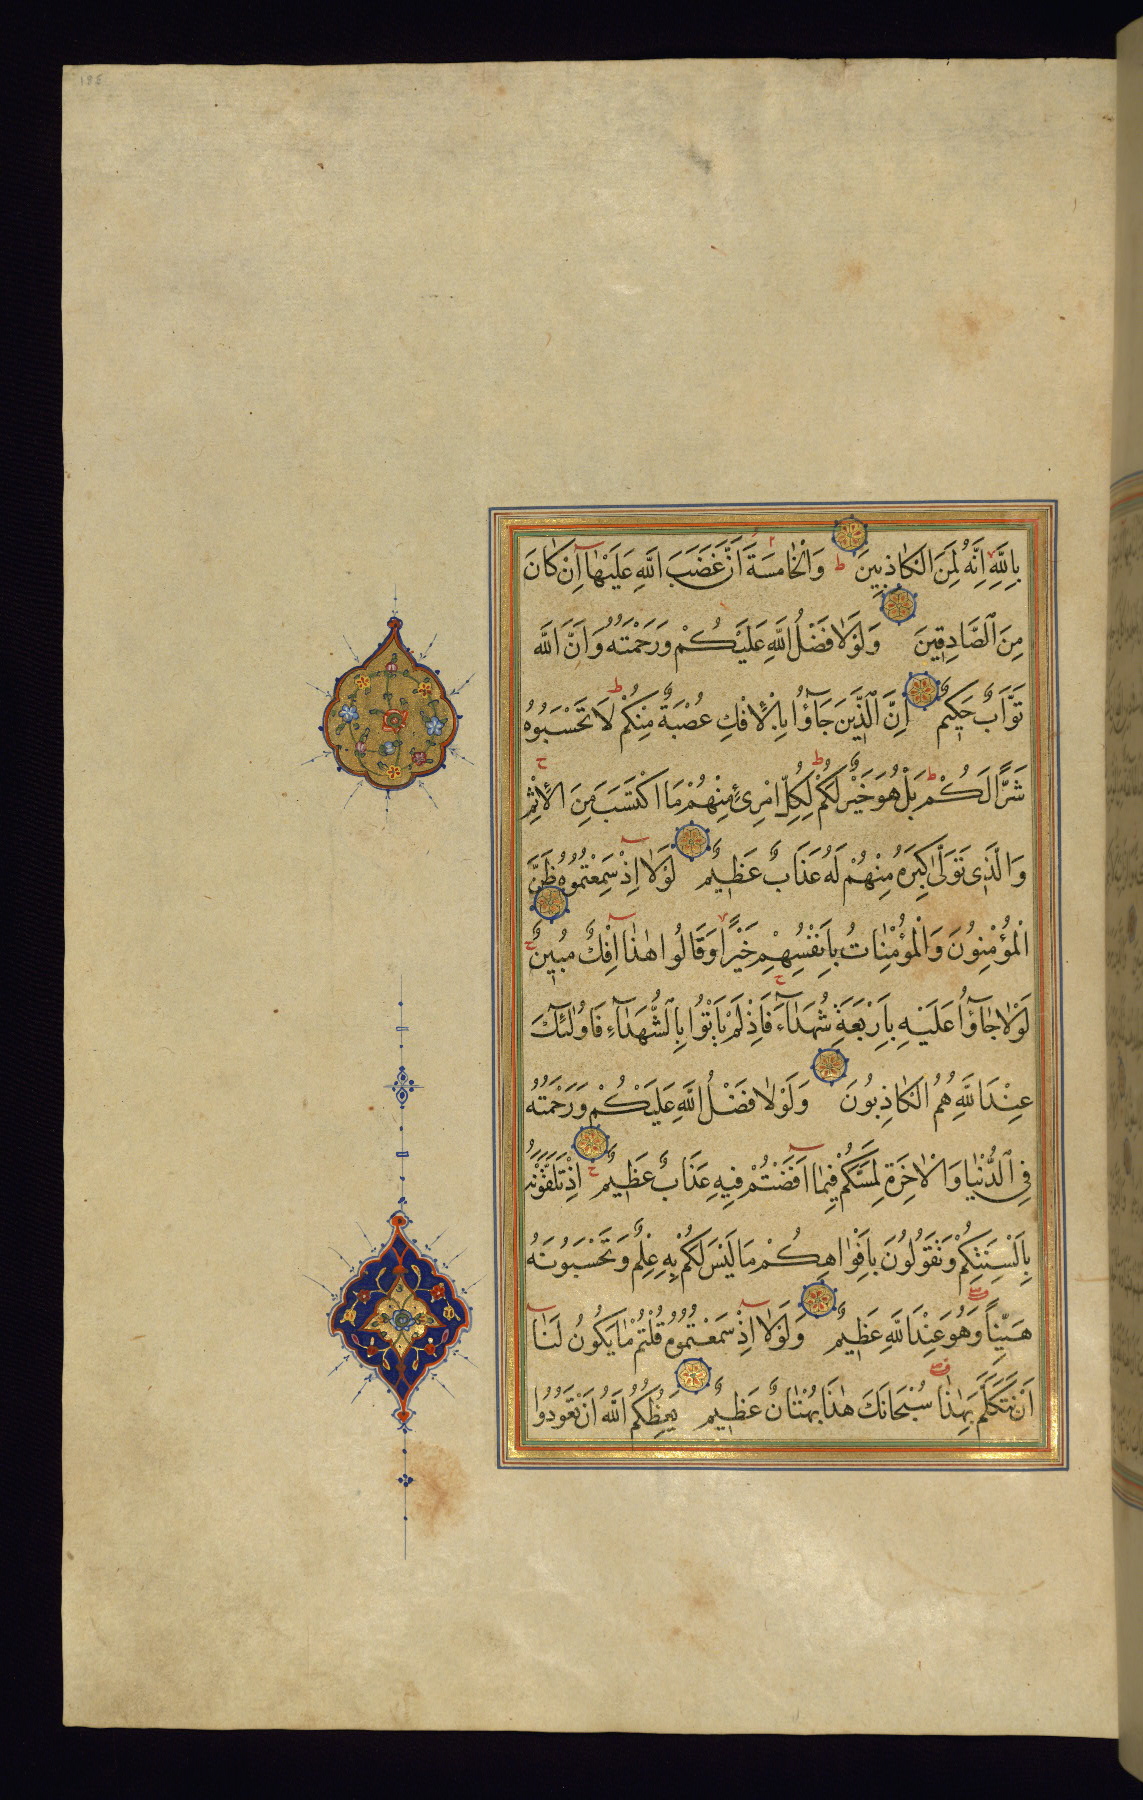 بِاللَّهِ اِنَّهُ لَمِنَ الْكَاذِبِينَ ط وَالْخَامِسَةَ اَنَّ غَضَبَ اللَّهِ عَلَيْهَا اِنْ كَانَ
مِنَ الصَّادِقِينَ وَلَوْلَا فَضْلُ اللَّهِ عَلَيْكُمْ وَرَحْمَتُهُ وَاَنَّ اللَّهَ
تَوَّابٌ حَكِيمٌ اِنَّ الَّذِينَ جَآؤُا بِالْاِفْكِ عُصْبَةٌ مِنْكُمْ ط لَا تَحْسَبُوهُ
شَرًّا لَكُمْ ط بَلْ هُوَ خَيْرٌ لَكُمْ ط لِكُلِّ امْرِئٍ مِنْهُمْ مَا اكْتَسَبَ مِنَ الْاِثْمِ ح
وَالَّذِى تَوَلَّىٰ كِبْرَهُ مِنْهُمْ لَهُ عَذَابٌ عَظِيمٌ لَوْلَا اِذْ سَمِعْتُمُوهُ ظَنَّ
الْمُؤْمِنُونَ وَالْمُؤْمِنَاتُ بِاَنْفُسِهِمْ خَيْرًا وَقَالُوا هٰذَا اِفْكٌ مُبِينٌ ح
لَوْلَا جَآؤُا عَلَيْهِ بِاَرْبَعَةِ شُهَدَآءَ ح فَاِذْ لَمْ يَاْتُوا بِالشُّهَدَآءِ فَاُولٰئِكَ
عِنْدَ اللَّهِ هُمُ الْكَاذِبُونَ وَلَوْلَا فَضْلُ اللَّهِ عَلَيْكُمْ وَرَحْمَتُهُ
فِى الدُّنْيَا وَالْاٰخِرَةِ لَمَسَّكُمْ فِيمَا اَفَضْتُمْ فِيهِ عَذَابٌ عَظِيمٌ ح اِذْ تَلَقَّوْنَهُ
بِاَلْسِنَتِكُمْ وَتَقُولُونَ بِاَفْوَاهِكُمْ مَا لَيْسَ لَكُمْ بِهِ عِلْمٌ وَتَحْسَبُونَهُ
هَيِّنًا وَهُوَ عِنْدَ اللَّهِ عَظِيمٌ وَلَوْلَا اِذْ سَمِعْتُمُوهُ قُلْتُمْ مَا يَكُونُ لَنَا
اَنْ نَتَكَلَّمَ بِهٰذَا سُبْحَانَكَ هٰذَا بُهْتَانٌ عَظِيمٌ يَعِظُكُمُ اللَّهُ اَنْ تَعُودُوا